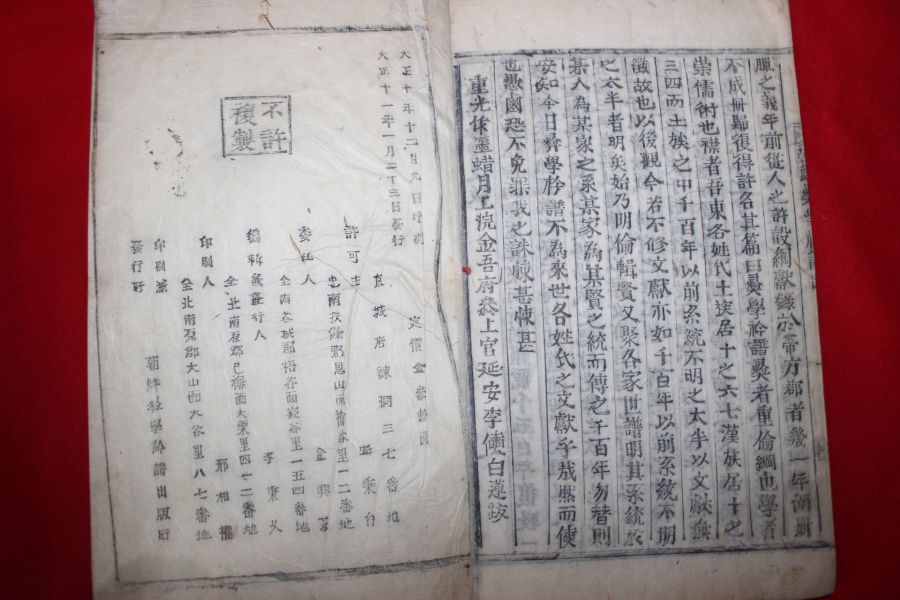 臘之義年前從人之許設綱獻錄於帶方郡者幾一年
不成冊歸復得許名其篇曰彜學衿譜彜者重倫綱也學者
崇儒術也襟者吾東各姓代土族居十之六七漢族居十之
三四而土族之中千百年以前系統不明之太半以文獻無
徵故也以後觀今若不修文獻亦如千百年以前系統不明
之太半者明矣始乃明倫輯賢又聚各家世譜明其系統於
某人為某家之系某家為某賢之統而傳之千百年勿替則
安知今日彜學衿譜不為來世各姓氏之文獻乎哉然而使
也愚鹵恐不免罪我之誅悚甚悚甚
重光作噩蜡月上浣金吾府參上官延安李 白蓮跋
大正十年十二月九日印刷
大正十一年一月二十三日發行
不許
複製
定價金參拾圓
京城府諫洞三七番地
許可主 秉台
忠南扶餘郡恩山面 谷里一二番地
委任人 金興
全南谷城郡梧谷面 谷里一五四番地
編輯兼發行人 李秉
全北南原郡巳梅面大栗里四一二番地
印刷人 邢相
全北南原郡大山面大谷里八七番地
印刷兼
發行所 朝鮮彜學衿譜出版所